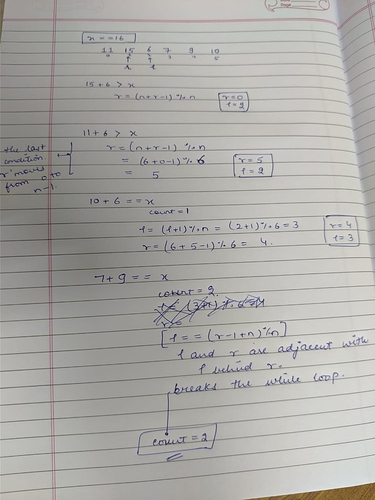 x = = 16
11 15 6 7 9 10
0 1 2 3 4 5
r l
15 + 6 > x
r = (n+r-1) % n
r = 0
l = 2
11 + 6 > x
r = (n+r-1) % n
= (6+0-1) % 6
= 5
r = 5
l = 2
the last
condition.
'r' moves
from 0 to
n-1.
10 + 6 = = x
count = 1
l = (l+1) % n = (2+1) % 6 = 3
r = (6+5-1) % 6 = 4.
r = 4
l = 3
7 + 9 = = x
count = 2.
[l = = (r-1+n) % n]
l and r are adjacent with
l behind r.
breaks the while loop.
count = 2